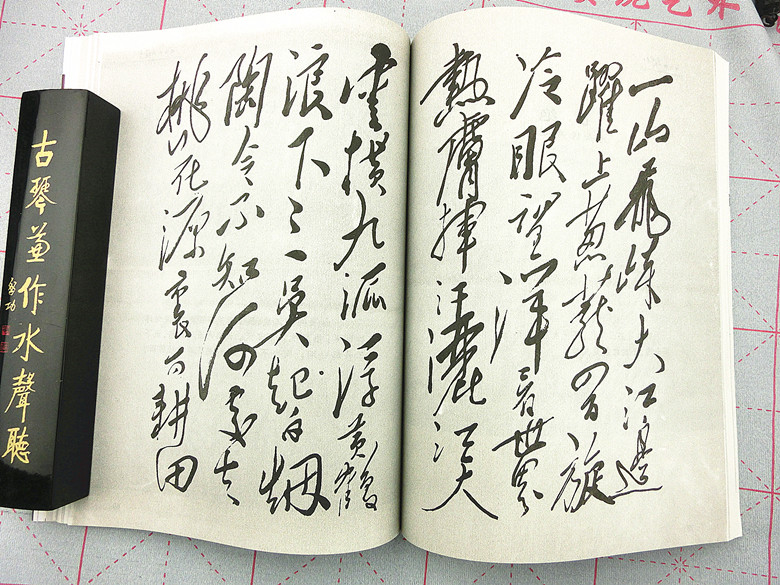 一山飛峙大江邊
躍上葱蘢四百旋
冷眼望洋看世界
熱膚揮汗灑江天
雲横九派浮黄鶴
浪下三吴起白烟
陶令不知何處去
桃花源裏可耕田
古琴兼作水聲聽
啓功